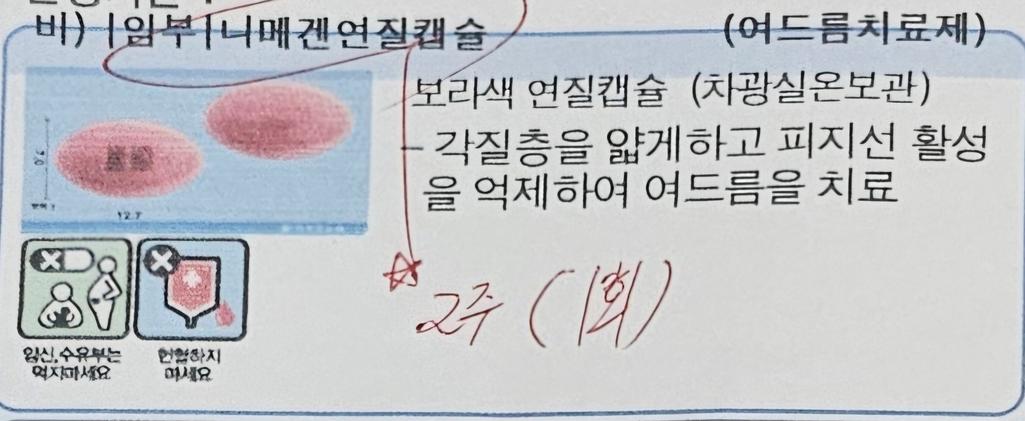 비) |임부|니메겐연질캡슐 (여드름치료제)
보라색 연질캡슐 (차광실온보관)
- 각질층을 얇게하고 피지선 활성
을 억제하여 여드름을 치료
7.0
12.7
☆ 2주 (1회)
임신,수유부는
먹지마세요
헌혈하지
마세요